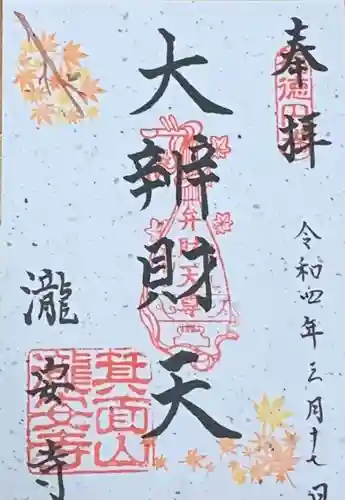 奉拝
令和四年三月十七日
大辨財天
弁財天尊
瀧安寺
箕面山
瀧安寺